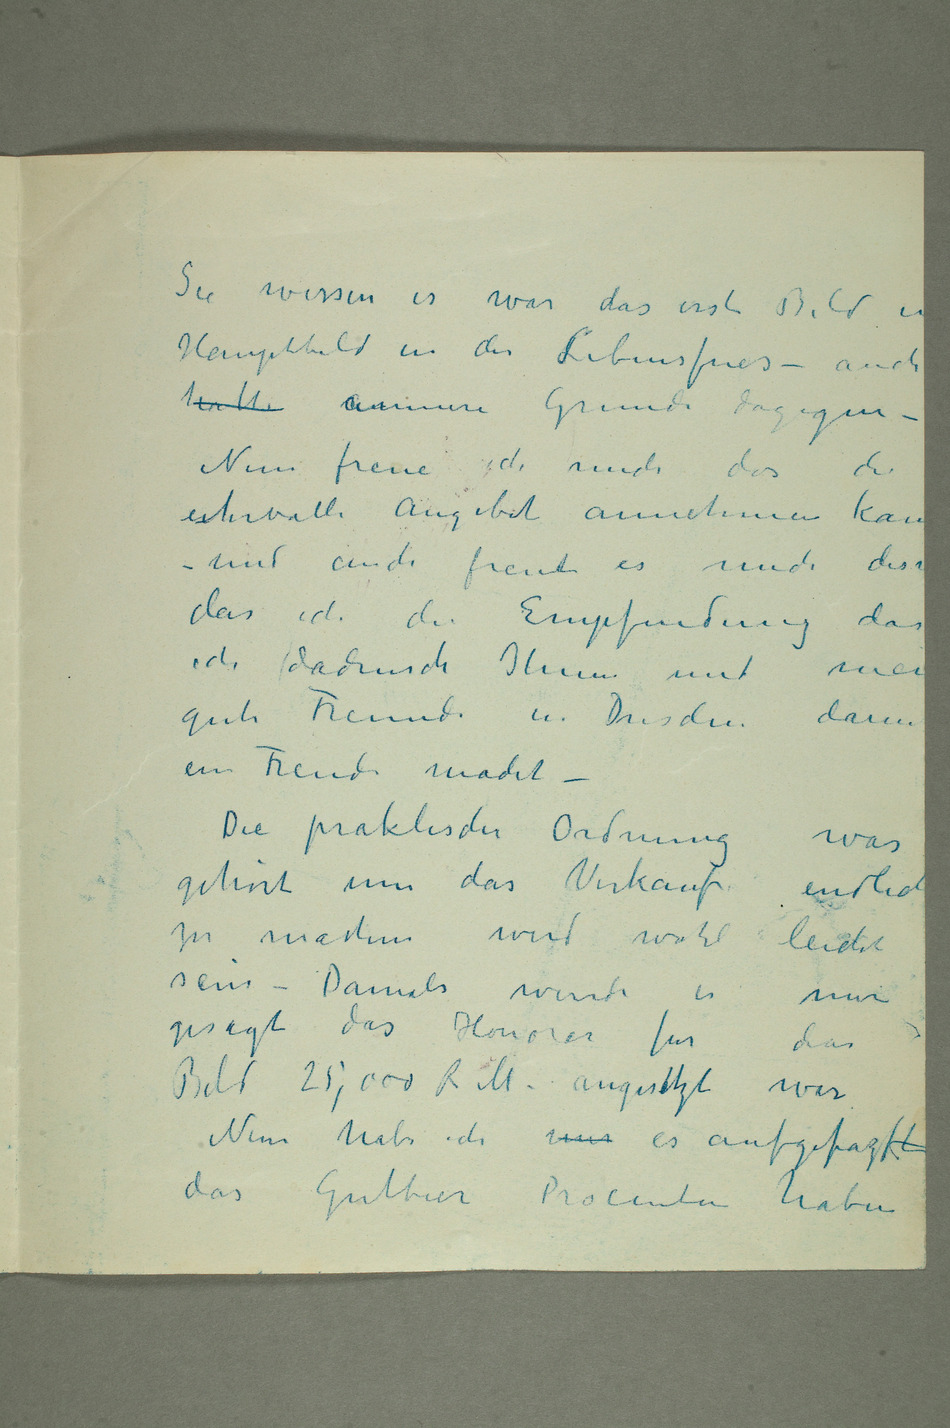 Sie wissen es war das erste Bild in
Hauptbild in der Lebensfries – auch
hatte annere Grunde dagegen –
Nun freue ich mich das die
ehrvolle Angebot annehmen kan
– und auch freut es mich
das ich die Empfindung das
ich dadursch Ihnen und mei
gute Freunde in Dresden
ein Freude macht –
Die praktische Ordnung was
gehört um das Verkauf endlich
zu machen wird wohl leicht
sein – Damals wurde es mir
gesagt das Honorar fur das
Bild 25,000 R.M. angesetzt war
Nun habe ich nur es aufgefaszt
das Gutbier Procenten haben